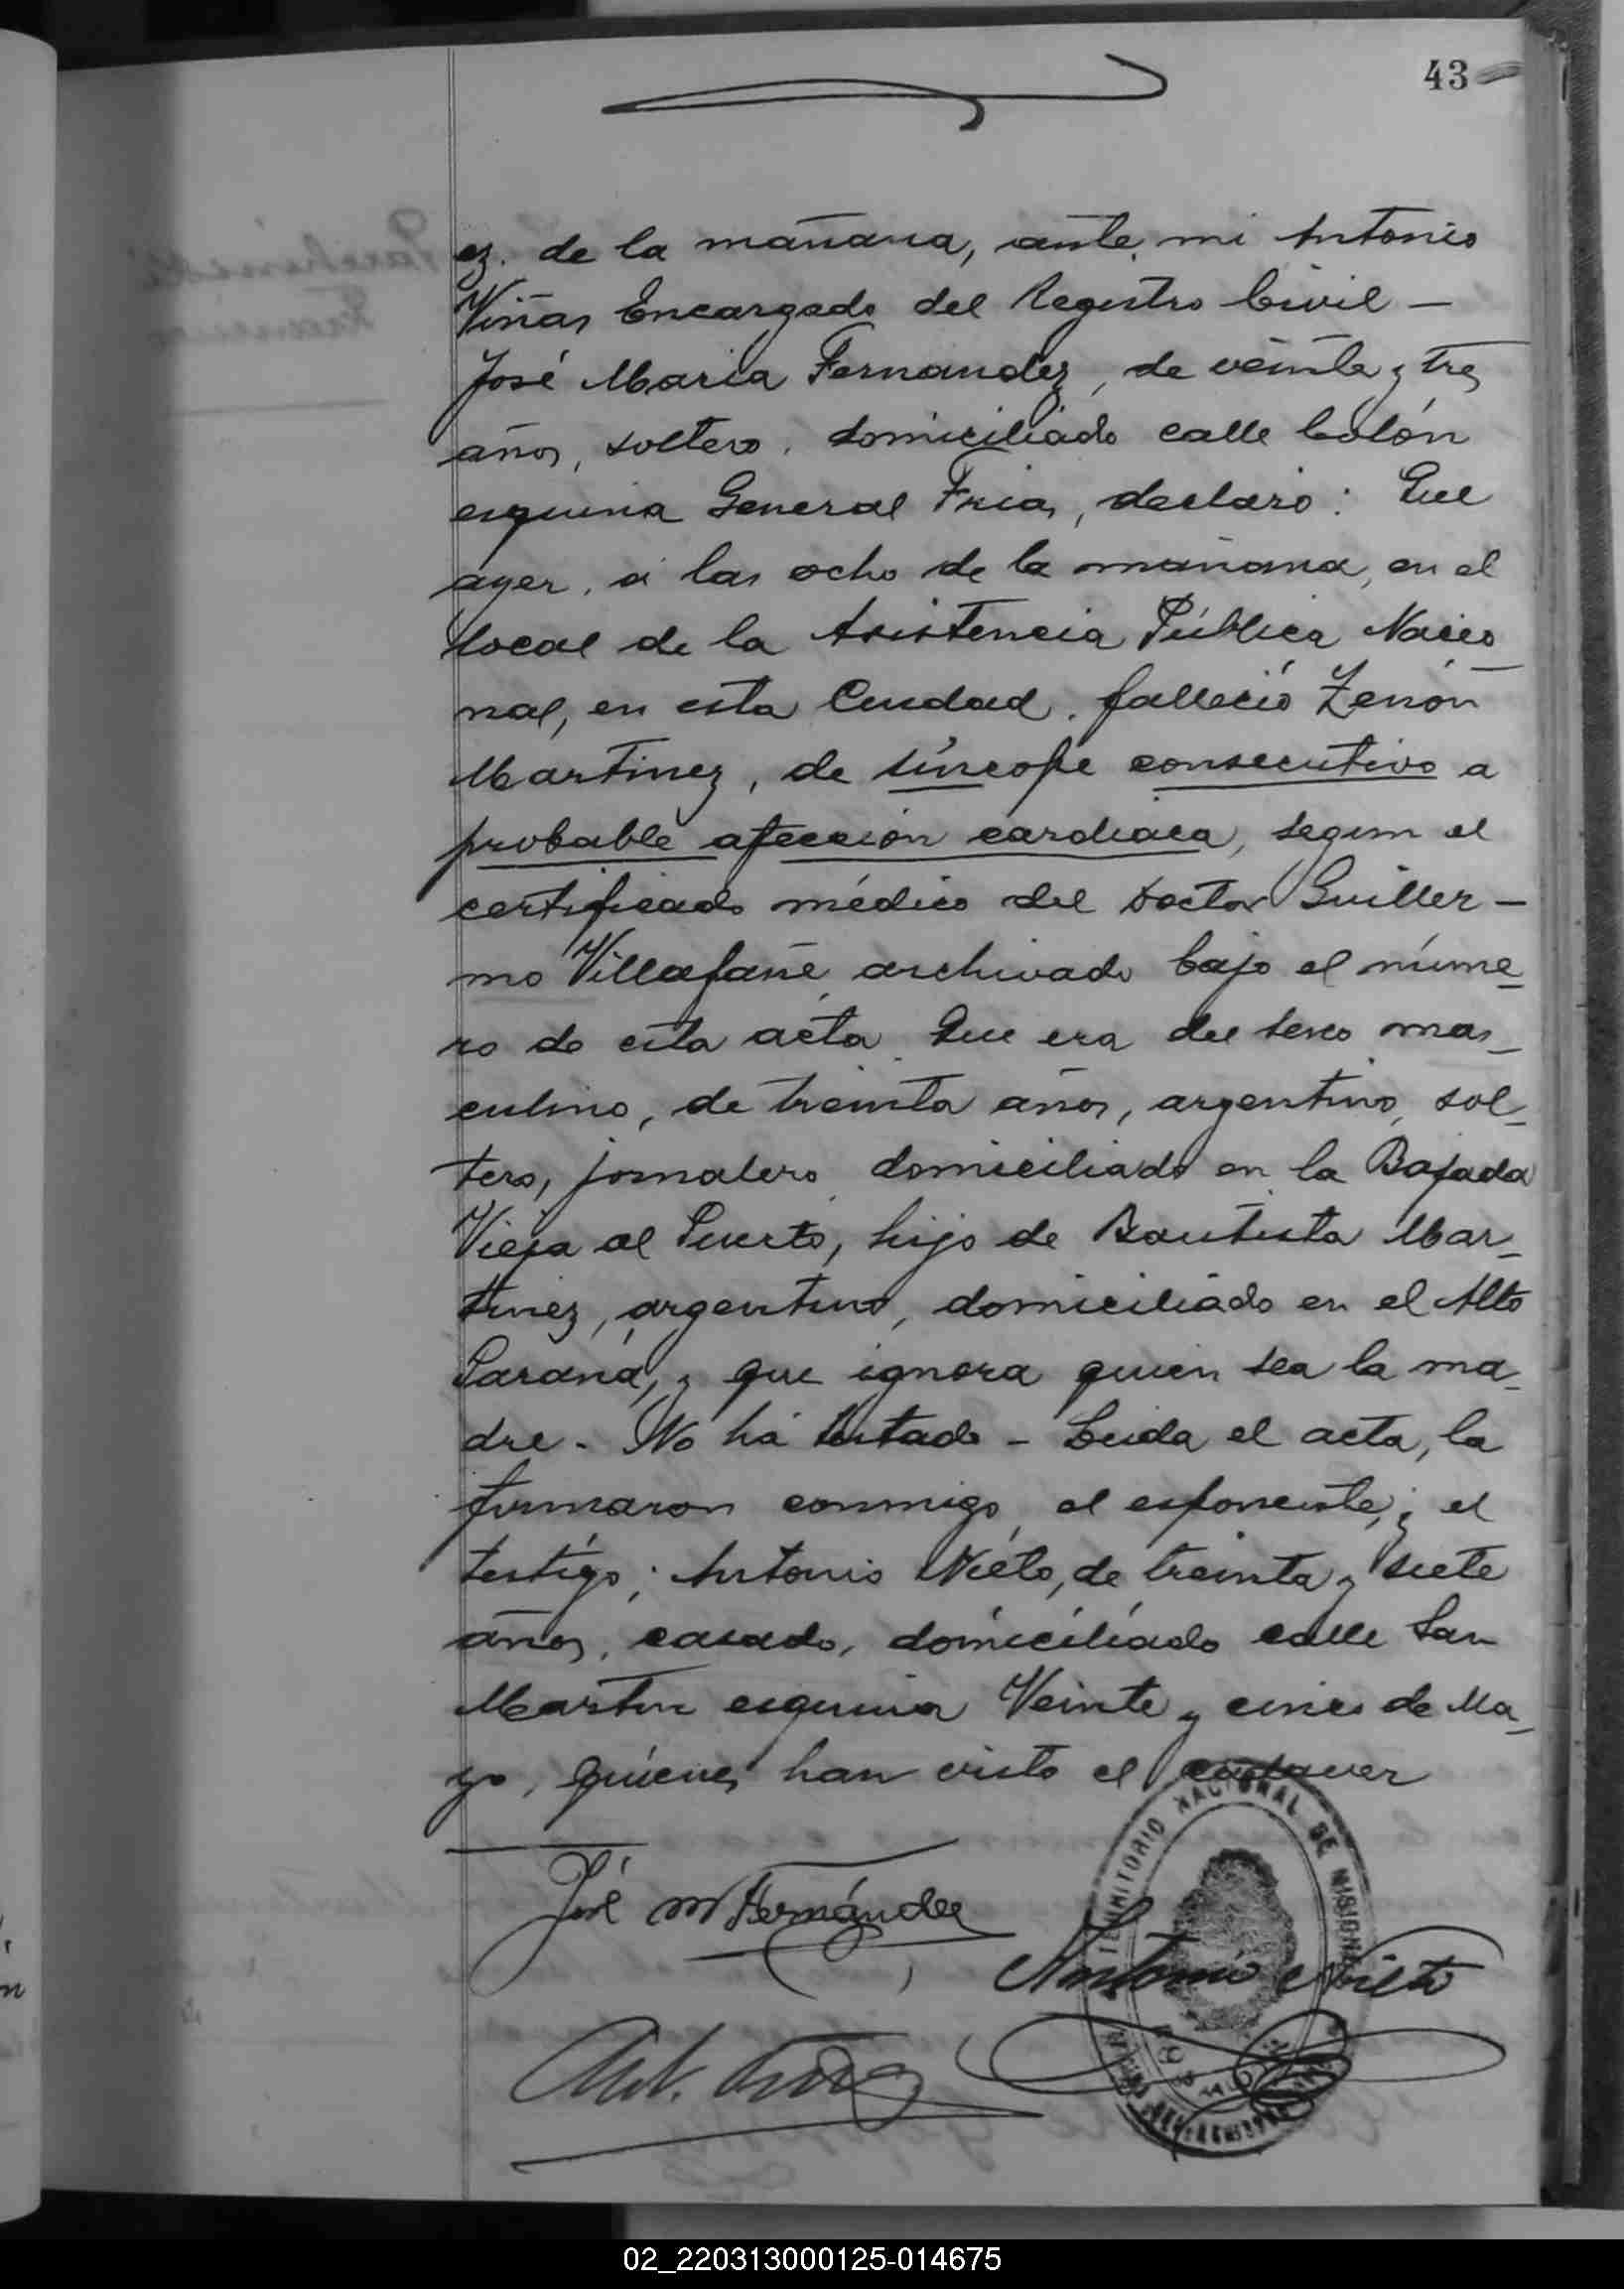 43
ez. de la mañana, ante mi Antonio
Viñas Encargado del Registro Civil —
José Maria Fernandez, de veinte y tres
años, soltero, domiciliado calle Colón
esquina General Frias, declaró: Que
ayer, á las ocho de la mañana, en el
local de la Asistencia Pública Nacio
nal, en esta Ciudad, falleció Zenón
Martinez, de síncope consecutivo a
probable afección cardiaca, segun el
certificado médico del Doctor Guiller-
mo Villafañe, archivado bajo el núme-
ro de esta acta. Que era del sexo mas-
culino, de treinta años, argentino, sol-
tero, jornalero, domiciliado en la Bajada
Vieja al Puerto, hijo de Bautista Mar-
tinez, argentino, domiciliado en el Alto
Paraná, y que ignora quien sea la ma-
dre. No há testado - Leida el acta, la
firmaron conmigo, el esponente, y el
testigo; Antonio Nieto, de treinta y siete
años, casado, domiciliado calle San
Martin esquina Veinte y cinco de Ma-
yo, quienes han visto el cadaver
José M Fernández
Antonio Nieto
TERRITORIO NACIONAL DE MISIONES
02_220313000125-014675